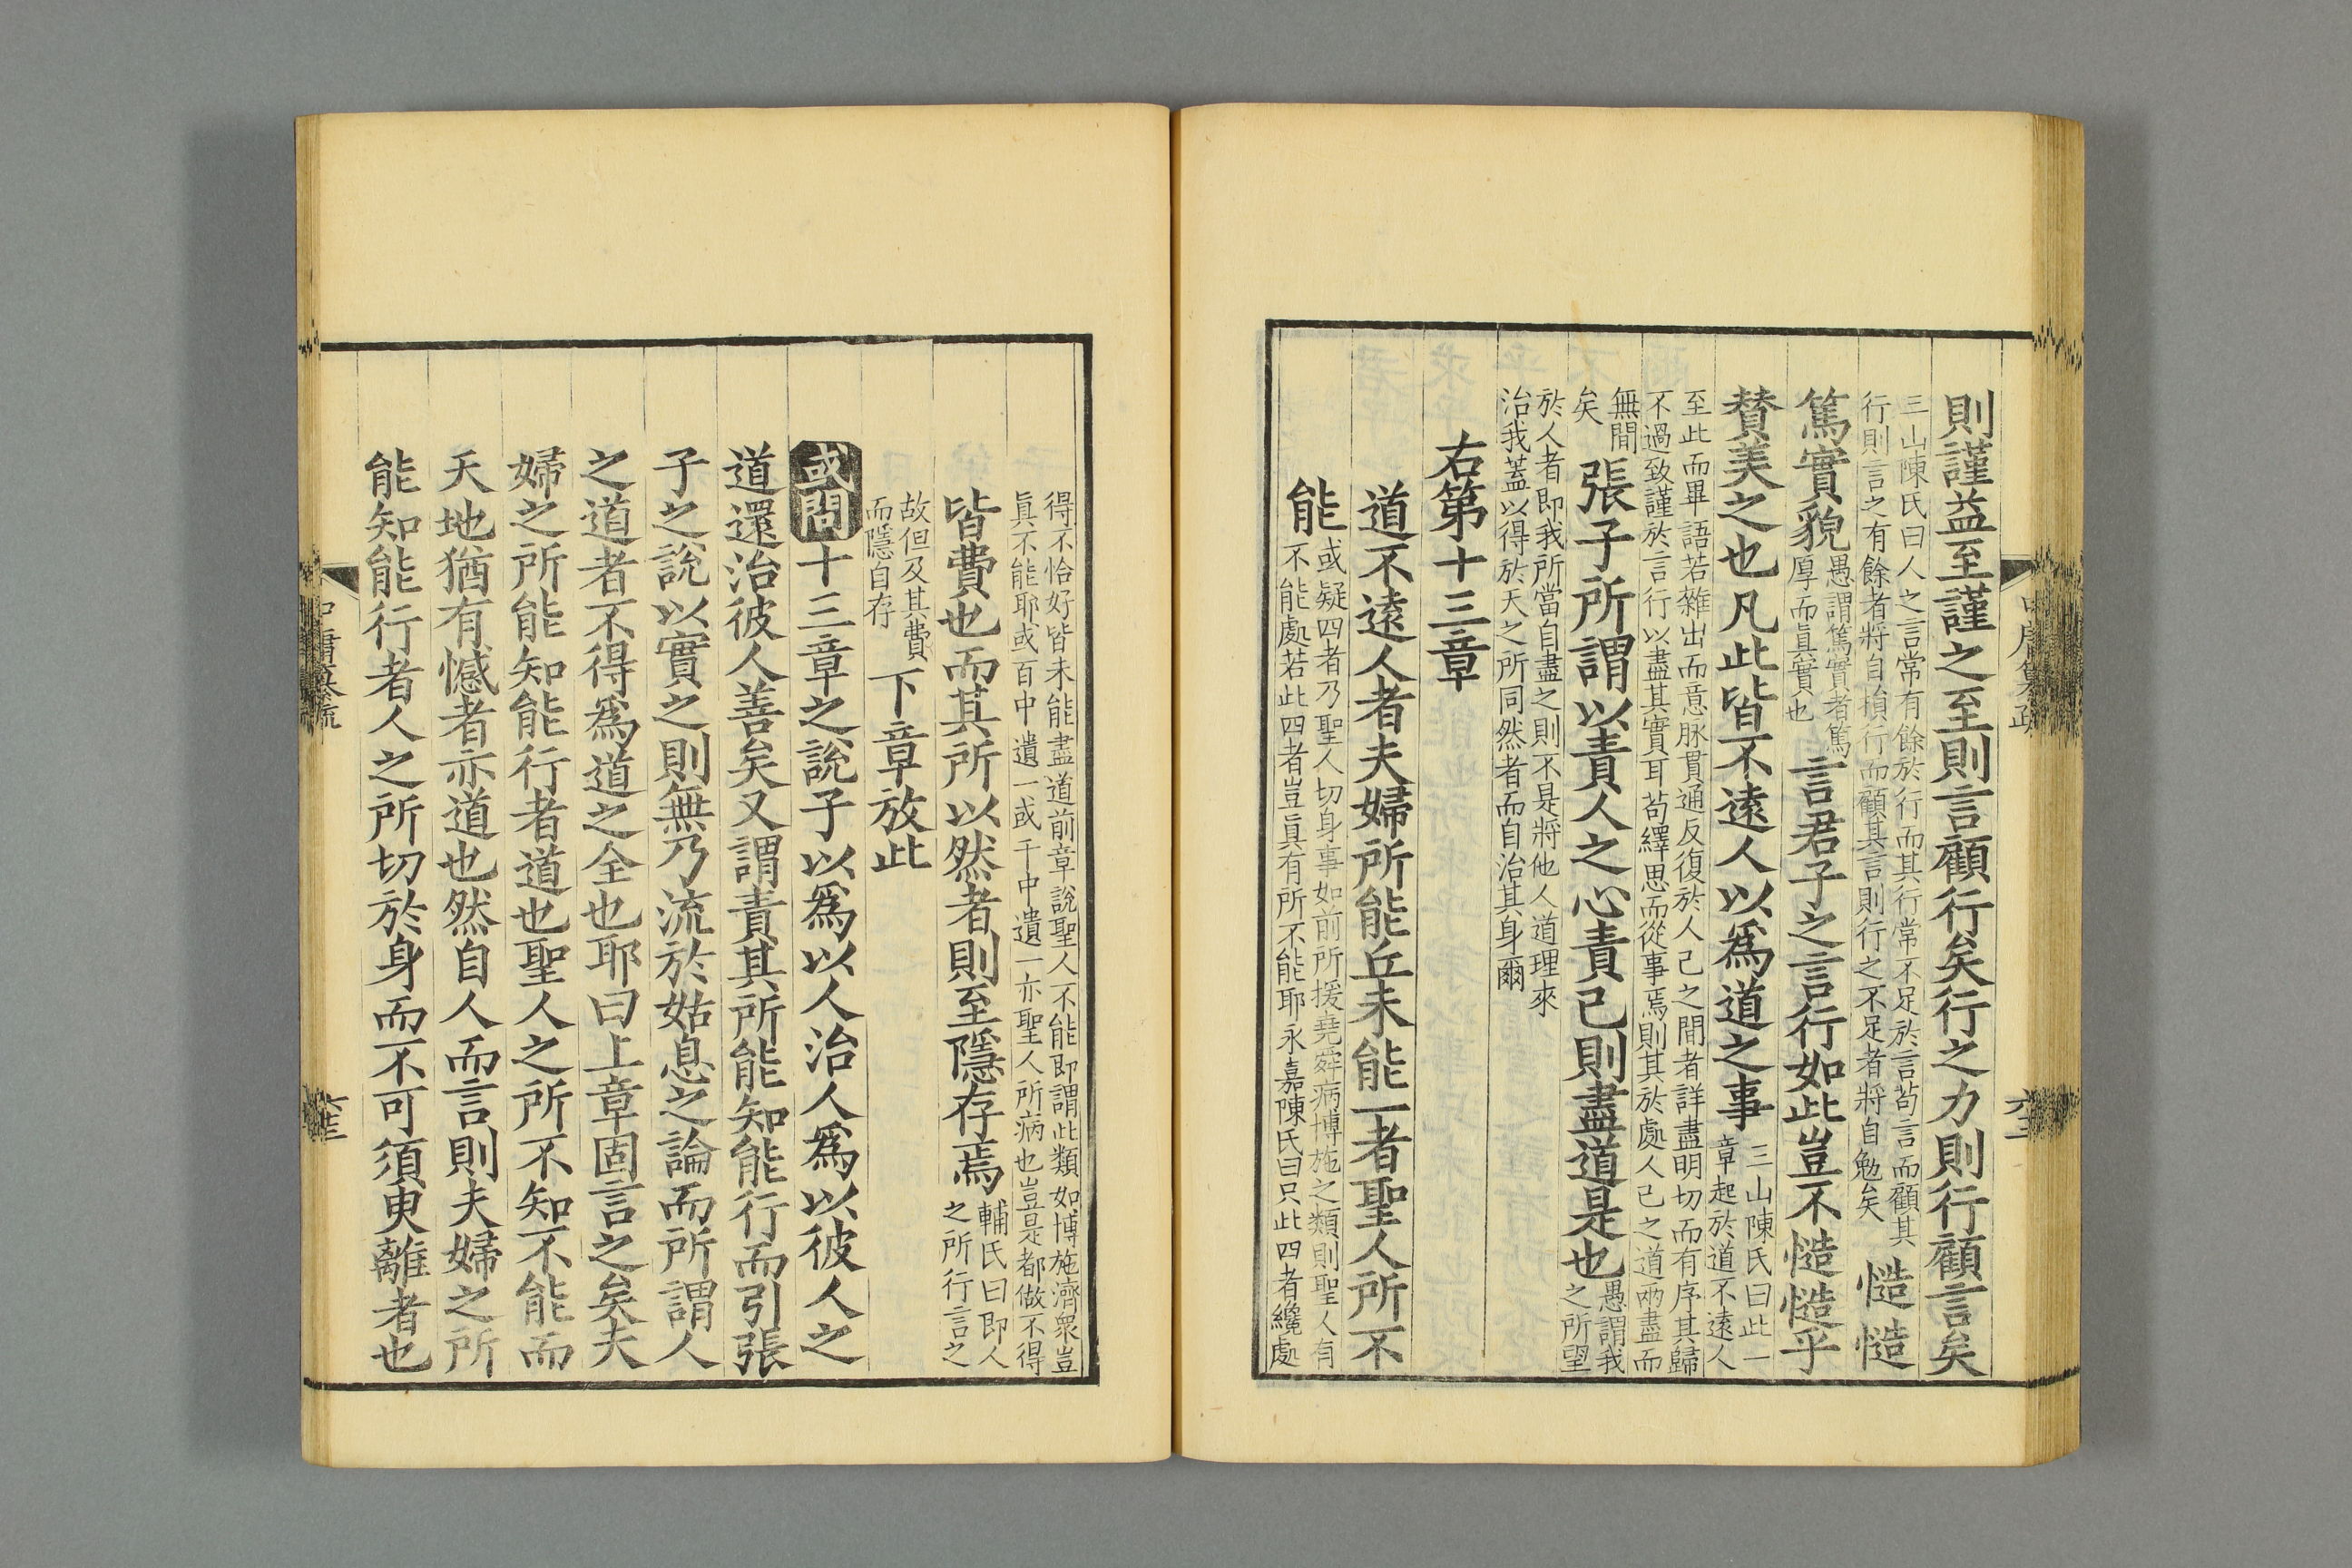 則謹益至謹之至則言顧行矣行之力則行顧言矣
三山陳氏曰人之言常有餘於行而其行常不足於言苟言而顧其
行則言之有餘者將自損行而顧其言則行之不足者將自勉矣
慥慥
篤實貌
愚謂篤實者篤
厚而眞實也
言君子之言行如此豈不慥慥乎
賛美之也凡此皆不遠人以爲道之事
三山陳氏曰此一
章起於道不遠人
至此而畢語若雜出而意脉貫通反復於人己之間者詳盡明切而有序其歸
不過致謹於言行以盡其實耳苟繹思而從事焉則其於處人己之道吻盡而
無間
矣
張子所謂以責人之心責己則盡道是也
愚謂我
之所望
於人者即我所當自盡之則不是將他人道理來
治我蓋以得於天之所同然者而自治其身爾
右第十三章
道不遠人者夫婦所能丘未能一者聖人所不
能
或疑四者乃聖人切身事如前所援堯舜病博施之類則聖人有
不能處若此四者豈眞有所不能耶永嘉陳氏曰只此四者纔處
得不恰好皆未能盡道前章說聖人不能即謂此類如博施濟衆豈
眞不能耶或百中遺一或千中遺一亦聖人所病也豈是都做不得
皆費也而其所以然者則至隱存焉
輔氏曰即人
之所行言之
故但及其費
而隱自存
下章放此
或問十三章之說子以爲以人治人爲以彼人之
道還治彼人善矣又謂責其所能知能行而引張
子之說以實之則無乃流於姑息之論而所謂人
之道者不得爲道之全也耶曰上章固言之矣夫
婦之所能知能行者道也聖人之所不知不能而
天地猶有憾者亦道也然自人而言則夫婦之所
能知能行者人之所切於身而不可須臾離者也